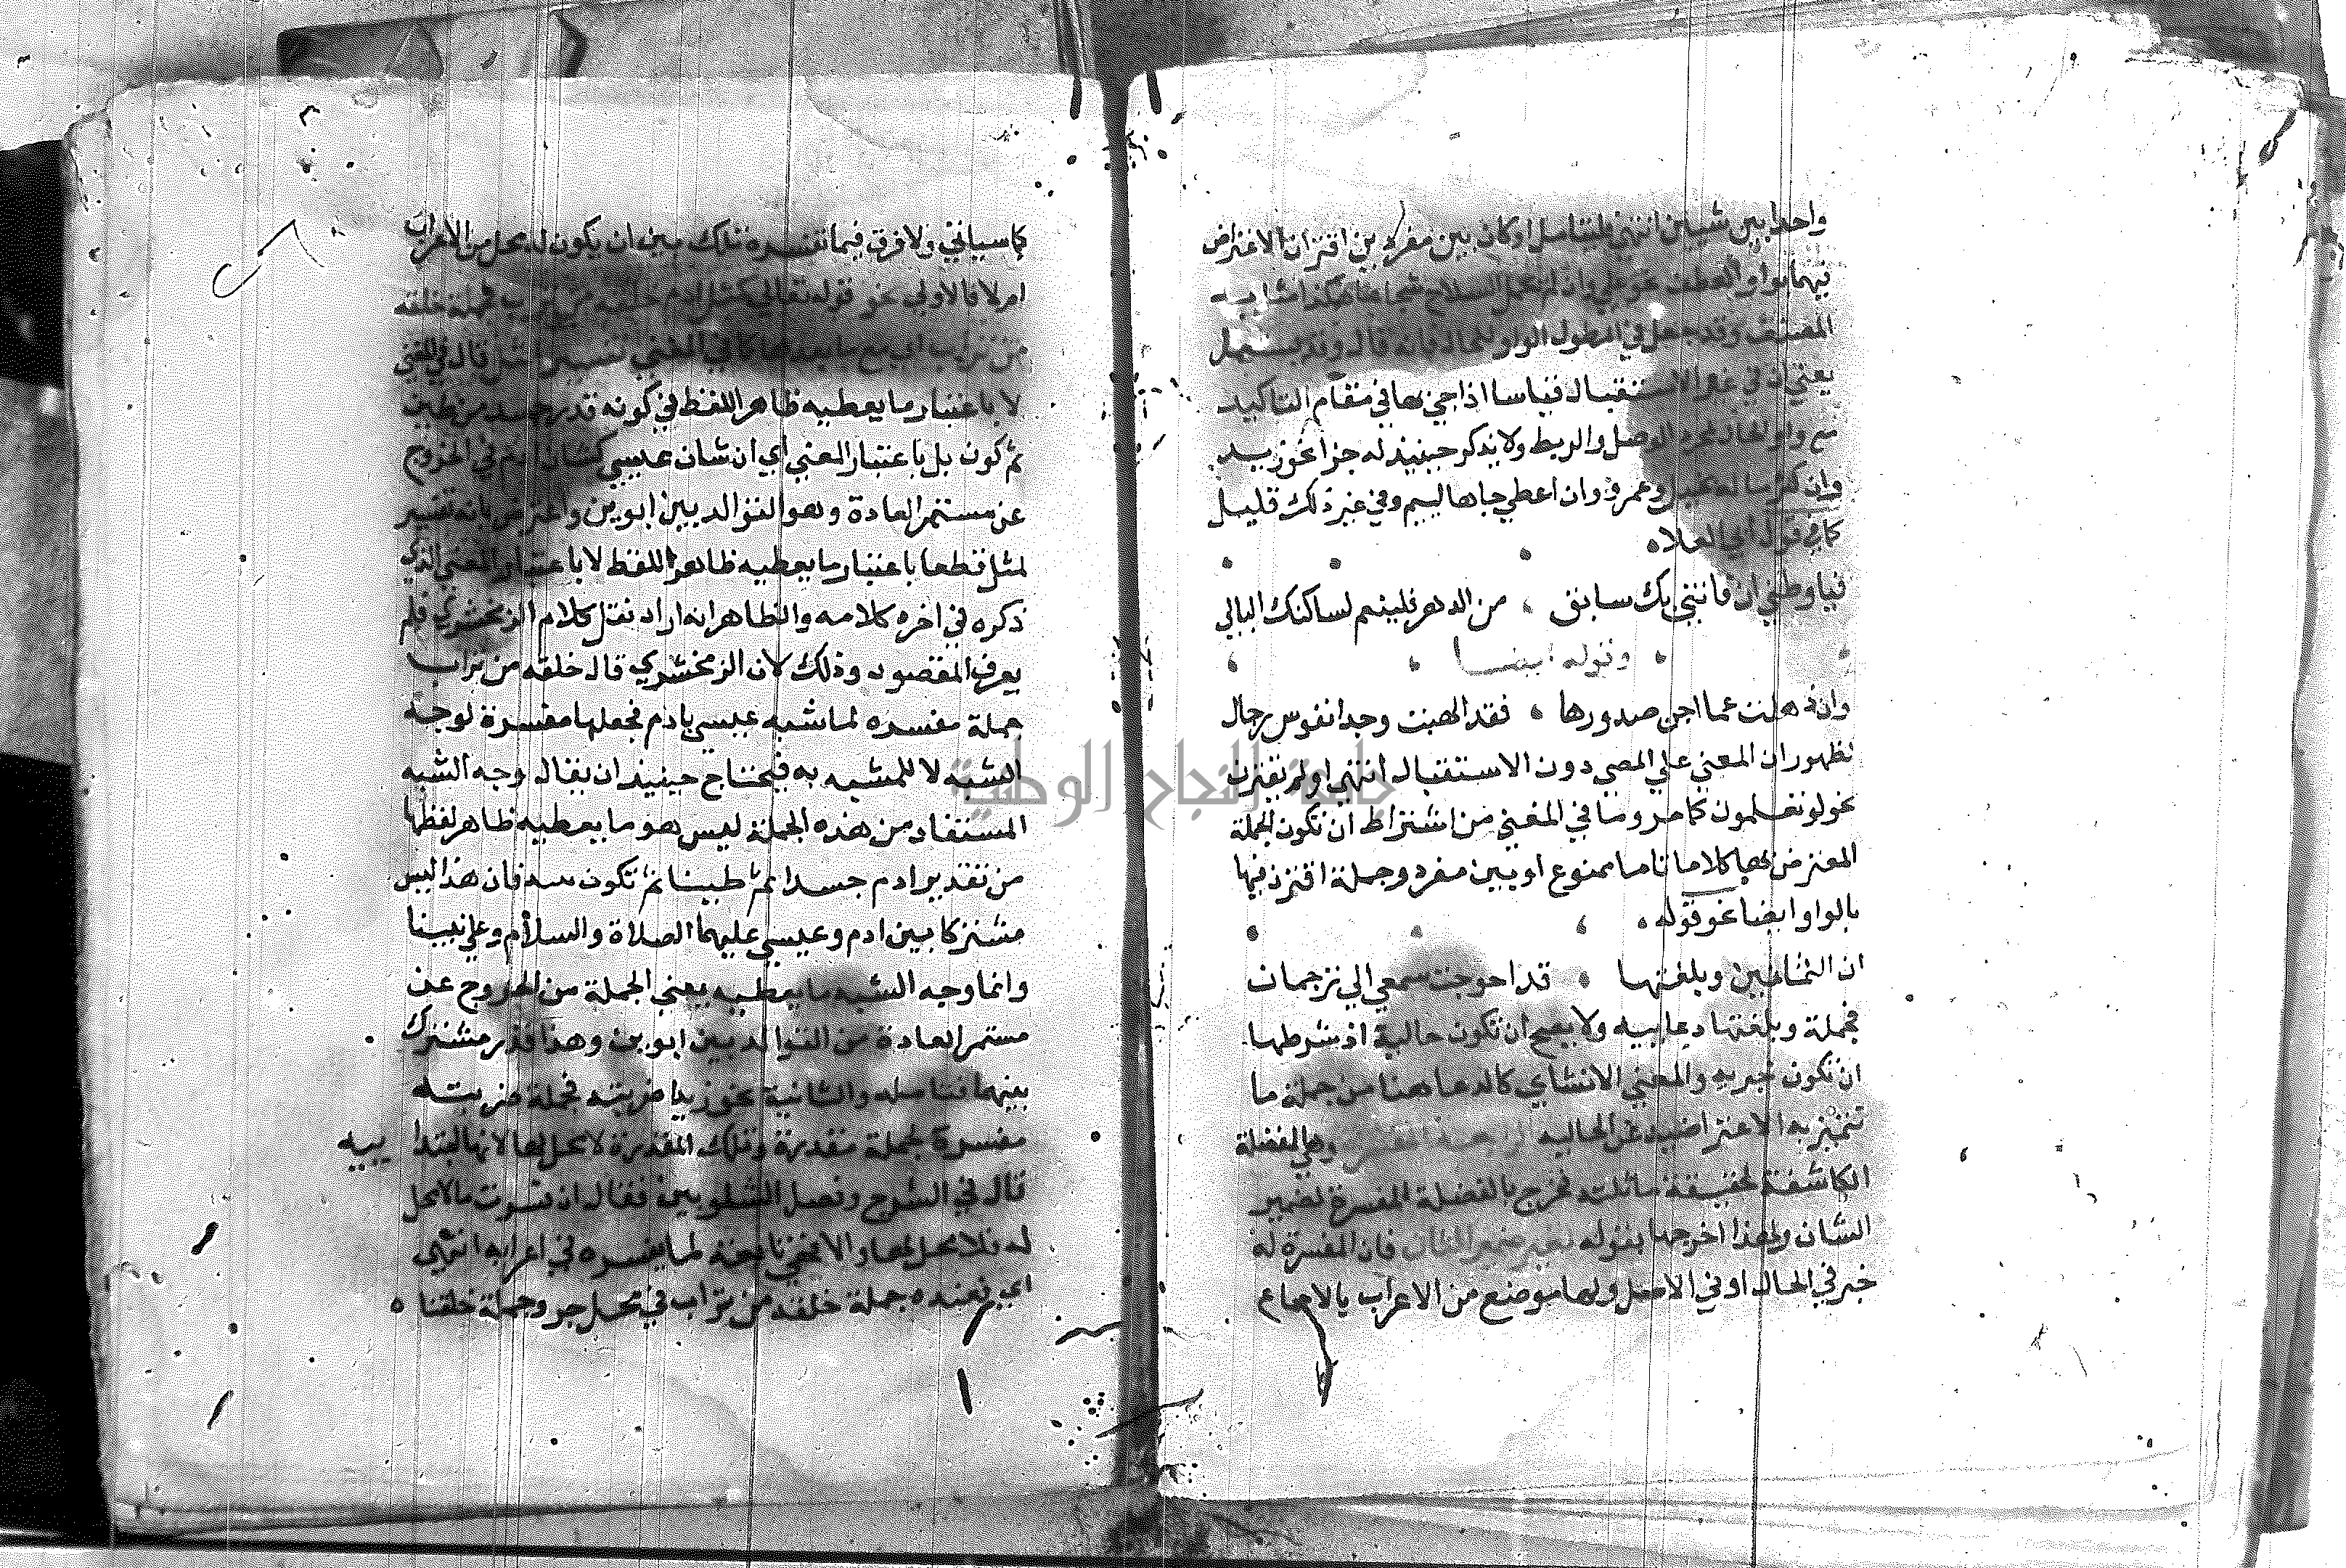 واحدا بين شيئين انتهي فليتامل او كان بين مفردين اقتران الاعتراض
فيهما بواو العطف نحو علي وان لم يحمل السلاح شجاع هكذا مشا به
المصنف وقد جعل في المطول الواو للحال فانه قال وقد يستعمل
يعني ان في غير الاستقبال قياسا اذا جي بها في مقام التاكيد
مع واو الحال لمجرد الوصل والربط ولا يذكر حينيذ له جزا نحو زيد
وان كثر ماله بخيل وعمرو وان اعطي جاها ليم وفي غير ذلك قليل
كما في قول ابي العلاء
فيا وطني ان فاتني بك سابق من الدهر فلينعم لساكنك البالي
وقوله ايضا
وان ذهلت عما اجن صدورها فقد الهبت وجدا نفوس رجال
لظهور ان المعني علي المضي دون الاستقبال انتهي او لم يقترن
نحو لو تعلمون كما مر وما في المغني من اشتراط ان تكون الجملة
المعترض بها كلاما تاما ممنوع او بين مفرد وجملة اقترن فيها
بالواو ايضا نحو قوله
ان الثمانين وبلغتها قد احوجت سمعي الي ترجمان
فجملة وبلغتها دعاييه ولا يصح ان تكون حالية اذ شرطها
ان تكون خبريه والمعني الانشاي كالدعا هنا من جملة ما
تتميز به الاعتراضيه عن الحاليه وهي الفضلة
الكاشفة لحقيقة ما تلته فخرج بالفضلة المفسرة لضمير
الشان ولهذا اخرجها بقوله غير ضمير الشان فان المفسرة له
خبر في الحال او في الاصل ولها موضع من الاعراب بالاجماع
كما سياتي ولا فرق فيما تفسره تلك بين ان يكون له محل من الاعراب
ام لا فالاولي نحو قوله تعالي كمثل ادم خلقه من تراب فجملة خلقه
من تراب مع ما بعدها كما في المغني تفسير لمثل قال في المغني
لا باعتبار ما يعطيه ظاهر اللفظ في كونه قدر جسد من طين
ثم كون بل باعتبار المعني اي ان شان عيسي كشان ادم في الخروج
عن مستمر العادة وهو التوالد بين ابوين واعترض بانه تفسير
لمثل قطعا باعتبار ما يعطيه ظاهر اللفظ لا باعتبار المعني الذي
ذكره في اخره كلامه والظاهر انه اراد نقل كلام الزمخشري فلم
يعرف المقصود وذلك لان الزمخشري قال خلقه من تراب
جملة مفسره لما شبه عيسي بادم فجعلها مفسرة لوجه
الشبه لا للمشبه به فيحتاج حينيذ ان يقال وجه الشبه
المستفاد من هذه الجملة ليس هو ما يعطيه ظاهر لفظها
من تقدير ادم جسدا ثم طينا ثم تكون منه فان هذا ليس
مشتركا بين ادم وعيسي عليهما الصلاة والسلام وعلي نبينا
وانما وجه الشبه ما يعطيه يعني الجملة من الخروج عن
مستمر العادة من التوالد بين ابوين وهذا قدر مشترك
بينهما فتامله والثانية نحو زيدا ضربته فجملة ضربته
مفسرة لجملة مقدرة وتلك المقدرة لا محل لها لانها ابتدا ييه
قال في الشرح وفصل الشلوبين فقال ان فسرت ما لا محل
له فلا محل لها والا فهي تابعة لما تفسره في اعرابه انتهي
اي فعنده جملة خلقه من تراب في محل جر وجملة خلقنا ه
جامعة النجاح الوطنية